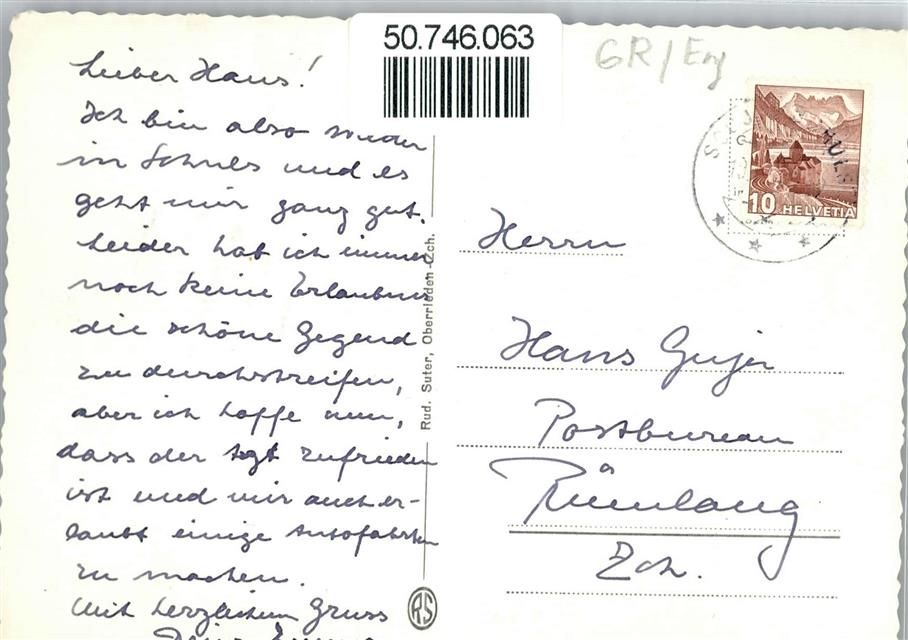 50.746.063
GR / Eng
Lieber Hans!
Ich bin also wieder
in Schuls und es
geht mir ganz gut.
Leider hab ich immer
noch keine Erlaubnis
die schöne Gegend
zu durchstreifen,
aber ich hoffe nun,
dass der Arzt zufrieden
ist und mir auch er-
laubt einige Autofahrten
zu machen.
Mit herzlichem Gruss
Rud. Suter, Oberrieden-Zch.
RS
10 HELVETIA
Herrn
Hans Gujer
Postbureau
Rümlang
Zch.